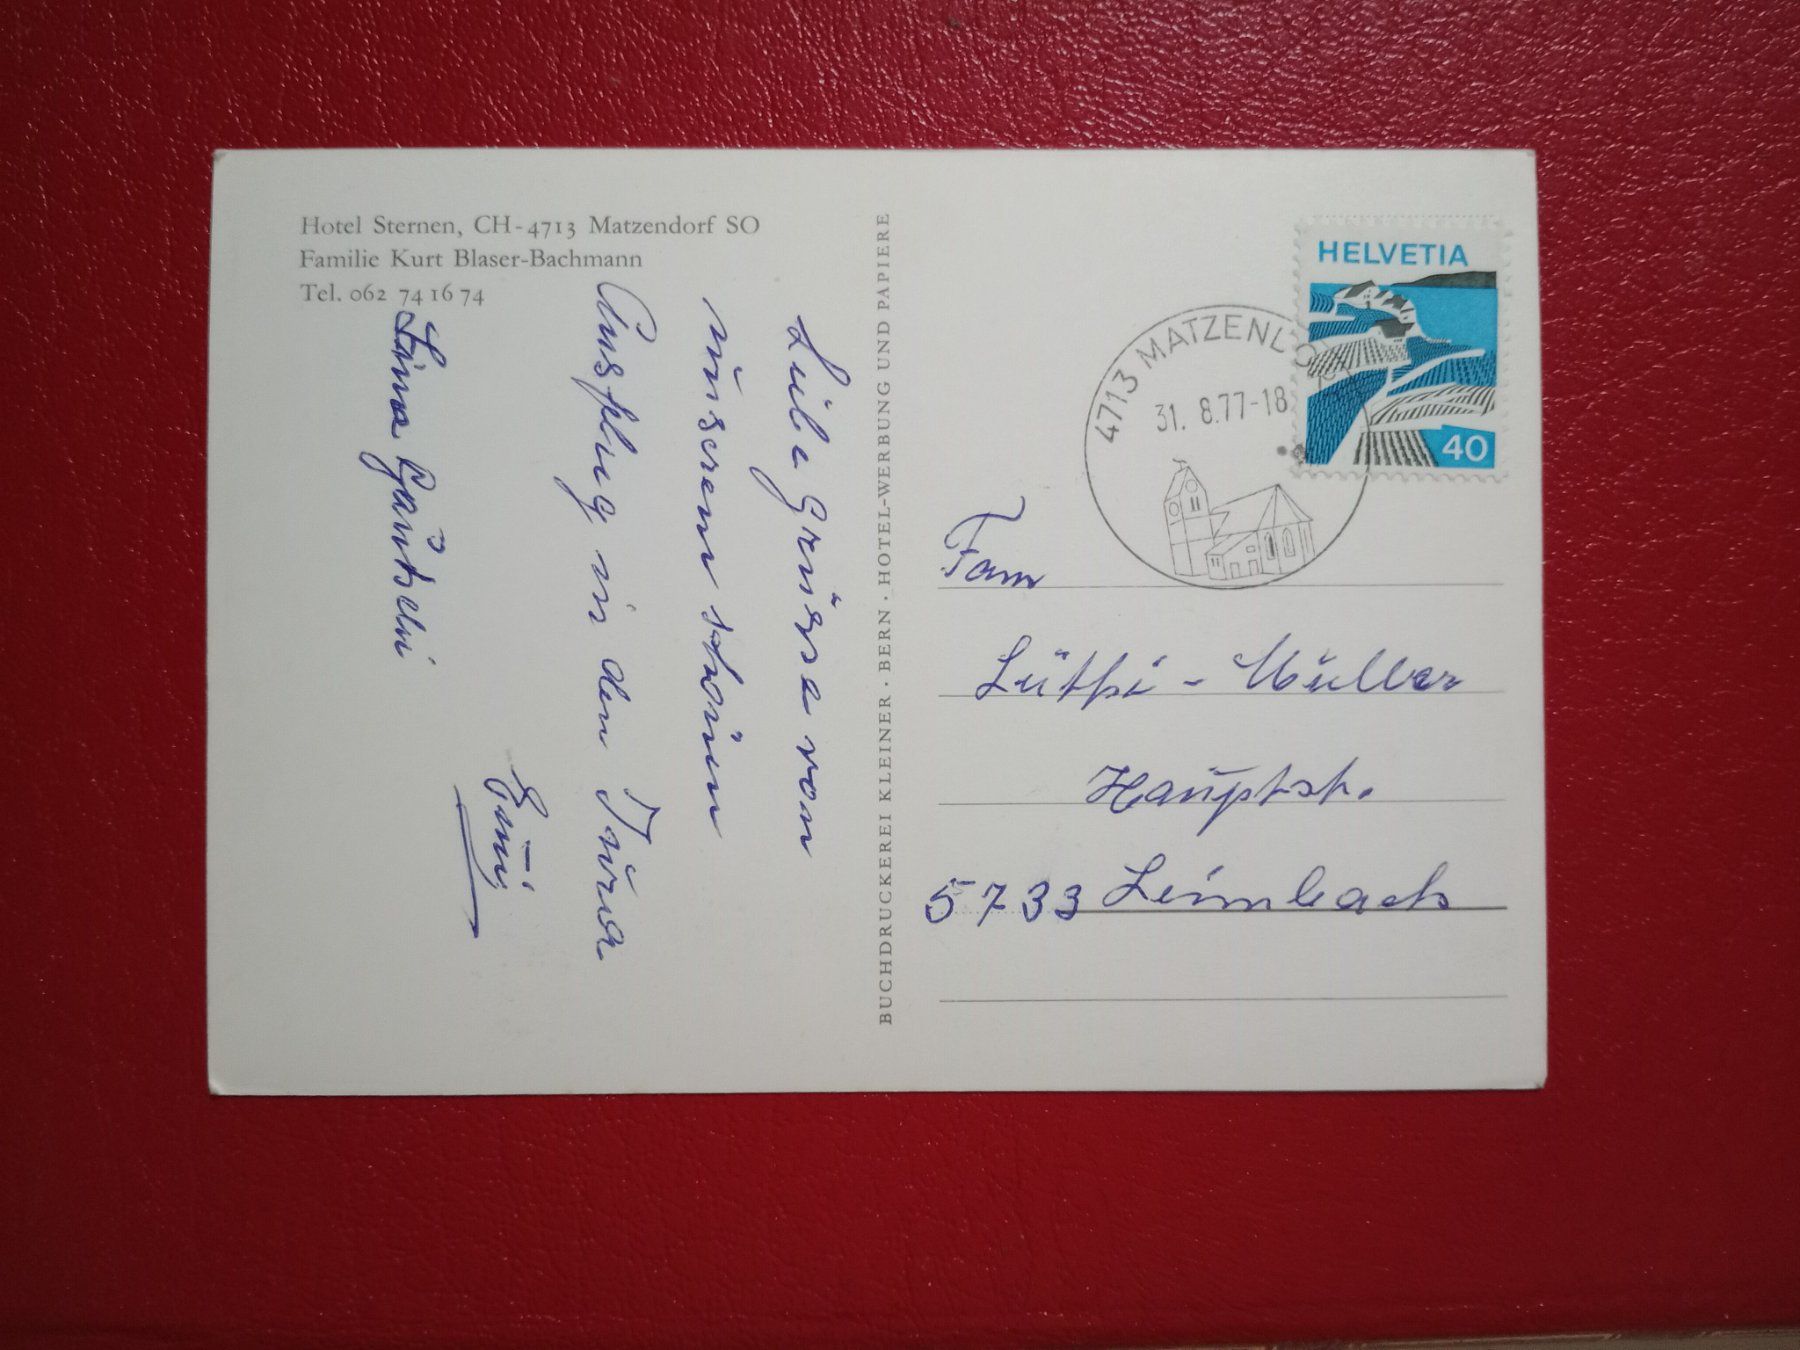 Hotel Sternen, CH-4713 Matzendorf SO
Familie Kurt Blaser-Bachmann
Tel. 062 74 16 74
Liebe Grüsse von
unserem schönen
Ausflug in den Jura
Lina Gautschi
BUCHDRUCKEREI KLEINER · BERN · HOTEL-WERBUNG UND PAPIERE
HELVETIA
40
4713 MATZENDORF
31. 8.77-18
Fam
Lüthi - Müller
Hauptstr.
5733 Leimbach